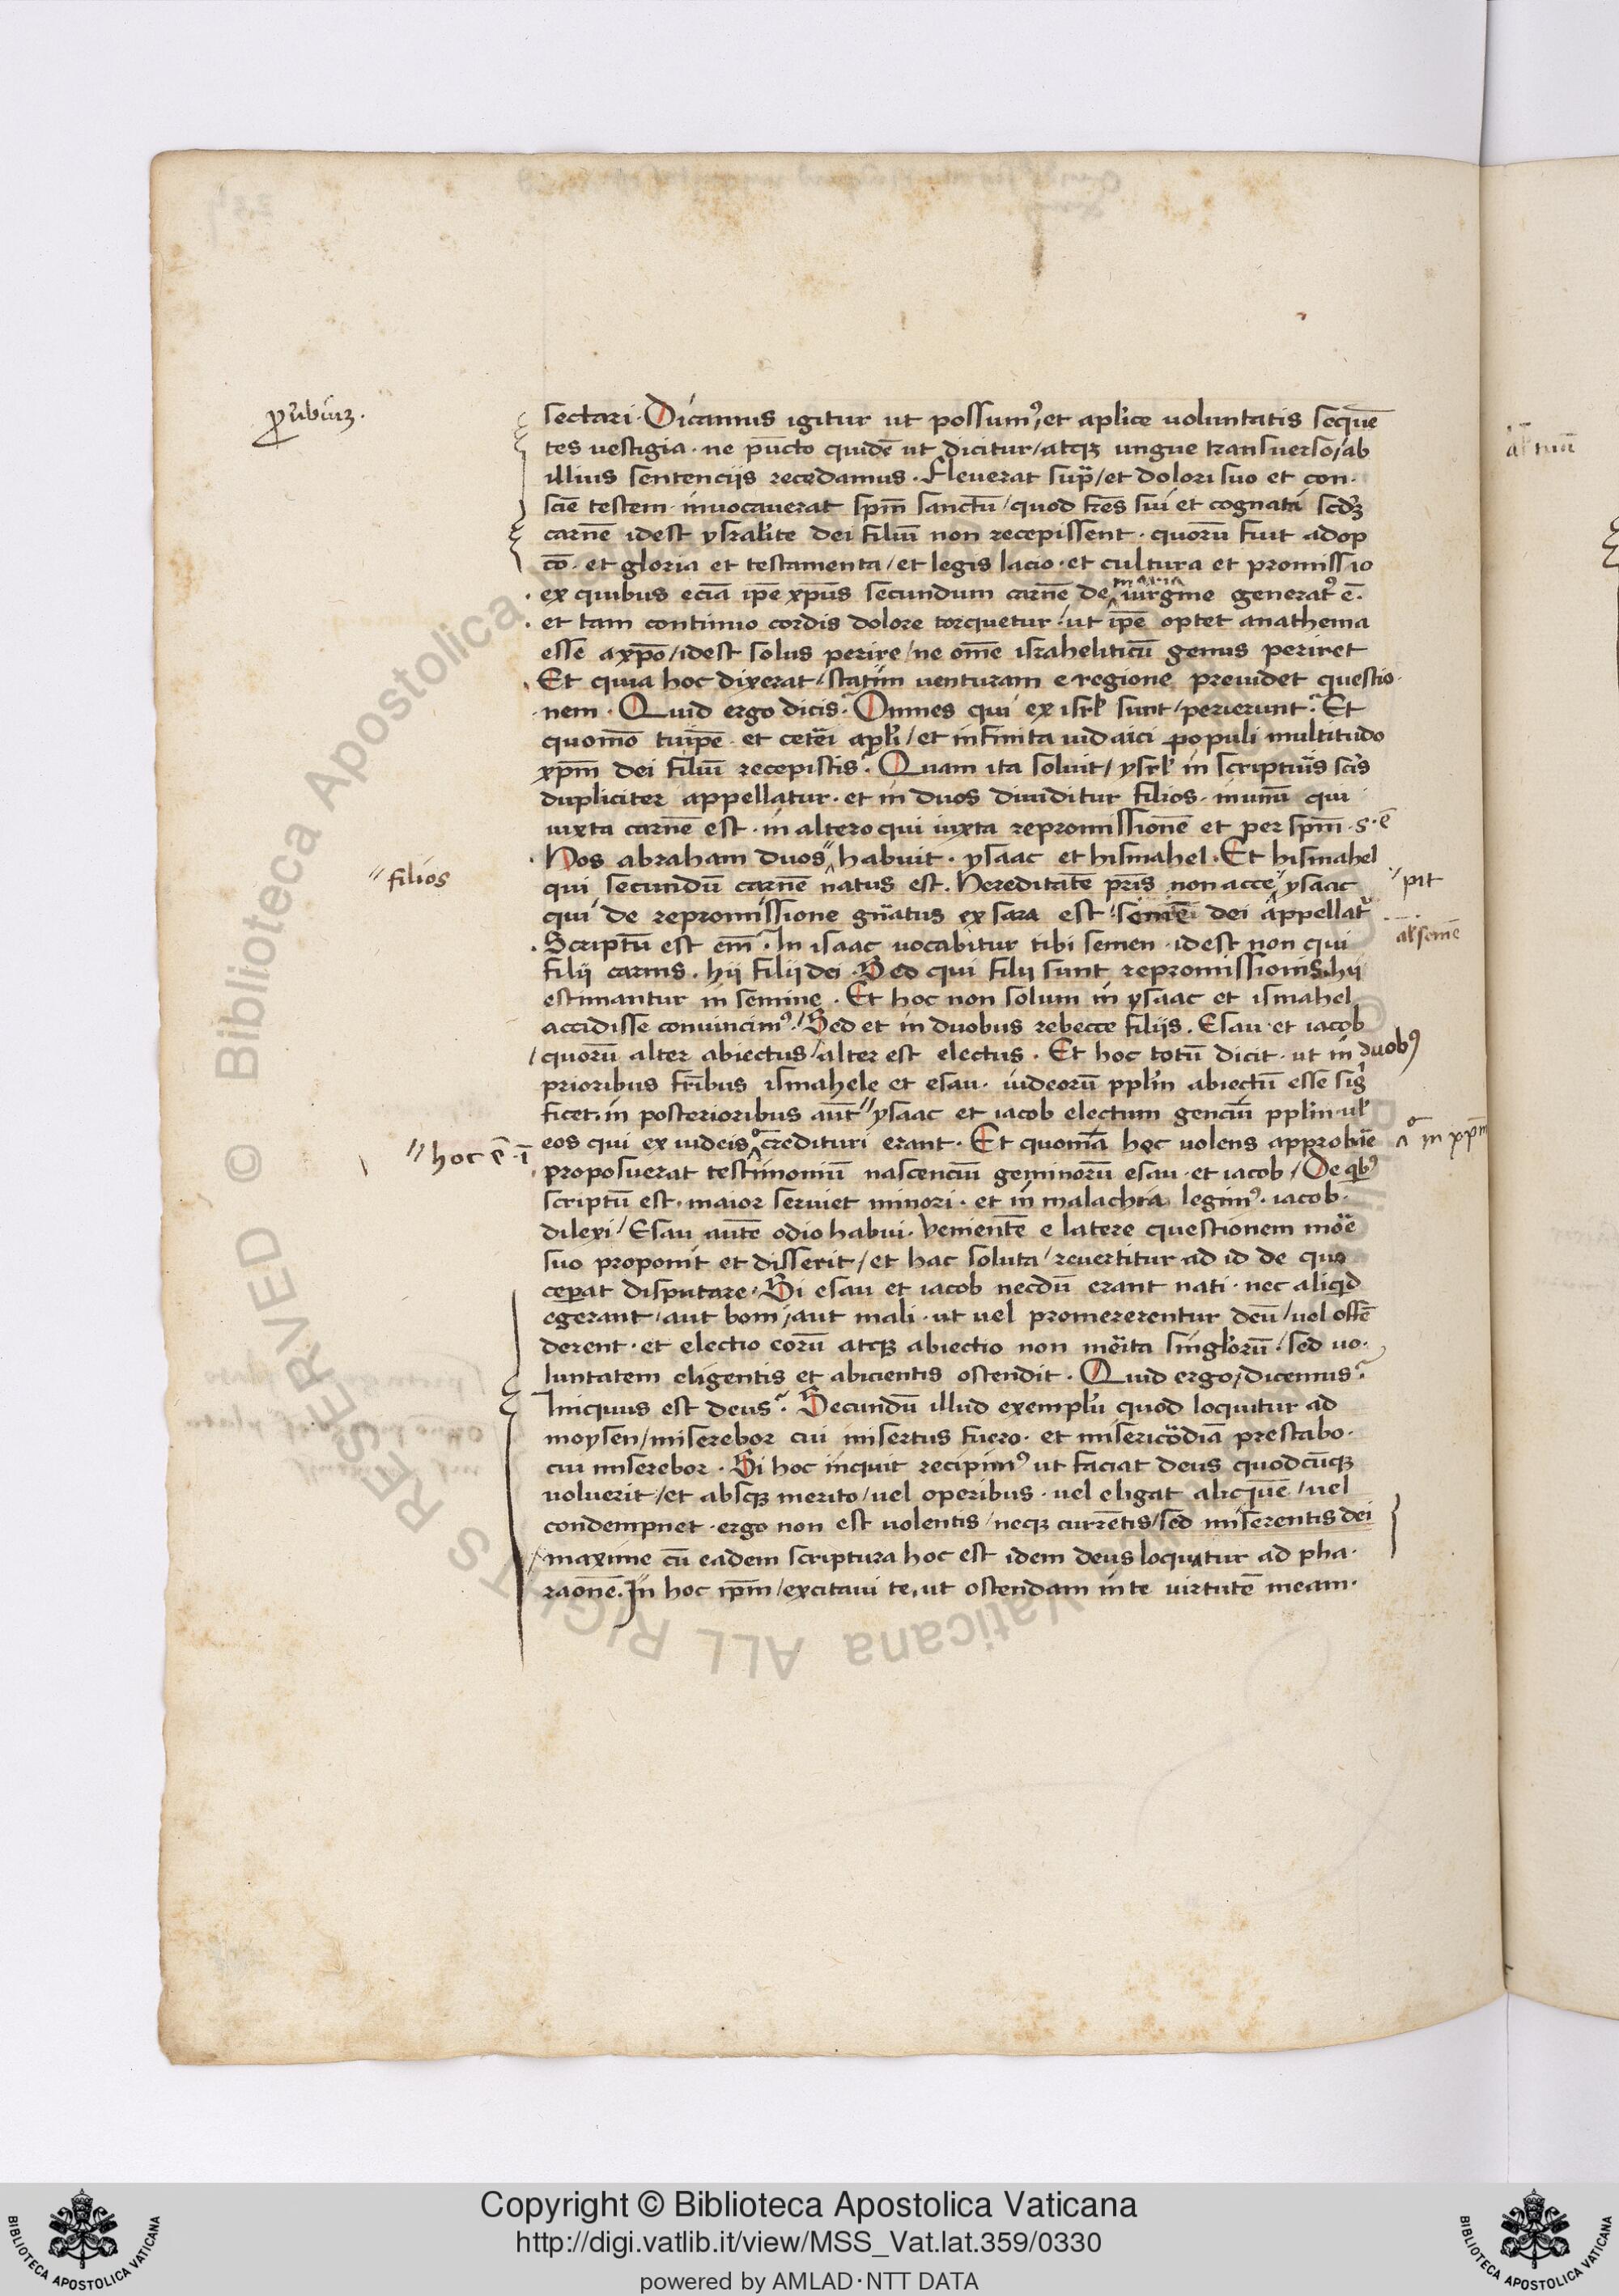 ꝓu̅biuꝫ.
sectari. Dicamus igitur ut possumꝰ, et aplice uoluntatis seque̅
tes uestigia. ne pu̅cto quide̅ ut dicitur / atqꝫ ungue transuerso / ab
illius sentencijs recedamus. Fleuerat sup̅ / et dolori suo et con-
scie̅ testem inuocauerat spm̅ sanctu̅ / quod fr̅es sui et cognati scdꝫ
carne̅ idest ysralite dei filiu̅ non recepissent. quoru̅ fuit adop
co̅. et gloria et testamenta / et legis lacio. et cultura et promissio
ex quibus ecia̅ ipe̅ xpu̅s secundum carne̅ de maria uirgine generatꝰ e̅.
et tam continuo cordis dolore torquetur. ut ipe̅ optet anathema
esse a xpo̅ / idest solus perire / ne ome̅ israheliticu̅ genus periret
Et quia hoc dixerat / statim uenturam e regione preuidet questio-
nem. Quid ergo dicis. Omnes qui ex isrl̅ sunt / perierunt. Et
quomo̅ tu ipe̅ et cete̅i apl̅i / et infinita iudaici populi multitudo
xpm̅ dei filiu̅ recepistis. Quam ita soluit / ysrl̅ in scriptu̅is scis̅
dupliciter appellatur. et in duos diuiditur filios. in unu̅ qui
iuxta carne̅ est. in altero qui iuxta repromissione̅ et per spm̅. s. e̅
Hos abraham duos habuit. ysaac et hismahel. Et hismahel
// filios
qui secundu̅ carne̅ natus est. Hereditate̅ pr̅is non acce ysaac
// pit
qui de repromissione gn̅atus ex sara est / seme̅ dei appellat̅
Scriptu̅ est em̅. In isaac uocabitur tibi semen. idest non qui
al̅ seme̅
filij carnis. hij filij dei. Sed qui filij sunt repromissionis. hij
estimantur in semine. Et hoc non solum in ysaac et ismahel
accidisse conuincimꝰ / Sed et in duobus rebecce filijs. Esau. et iacob
quoru̅ alter abiectus / alter est electus. Et hoc totu̅ dicit. ut in duobꝰ
prioribus fr̅ibus ismahele et esau. iudeoru̅ ppl̅m abiectu̅ esse sig̅
ficet. in posterioribus aut̅ // ysaac et iacob electum genciu̅ ppl̅m. ul̅
eos qui ex iudeis credituri erant. Et quonia̅ hoc uolens approba̅e
in xpm̅
// hoc e̅. i̅
proposuerat testimoniu̅ nascenciu̅ geminoru̅ esau. et iacob / De qbꝰ
scriptu̅ est. maior seruiet minori. et in malachia legimꝰ. iacob.
dilexi / Esau aute̅ odio habui. Veniente̅ e latere questionem mo̅e
suo proponit et disserit / et hac soluta / reuertitur ad id de quo
ceperat disputare. Si esau et iacob necdu̅ erant nati. nec aliqd
egerant / aut boni / aut mali. ut uel promererentur deu̅ / uel offe̅
derent. et electio eoru̅ atqꝫ abiectio non me̅ita singl̅oru̅ / sed uo-
luntatem eligentis et abicientis ostendit. Quid ergo / dicemus.
Iniquus est deus. Secundu̅ illud exemplu̅ quod loquitur ad
moysen / miserebor cui misertus fuero. et miserico̅dia̅ prestabo.
cui miserebor. Si hoc inquit recipimꝰ ut faciat deus quodcu̅qꝫ
uoluerit / et absqꝫ merito / uel operibus. uel eligat alique̅ / uel
condempnet. ergo non est uolentis / neqꝫ curre̅tis / sed miserentis dei
/ maxime cu̅ eadem scriptura hoc est idem deus loquatur ad pha-
raone̅. In hoc ip̅m / excitaui te, ut ostendam in te uirtute̅ meam.
Copyright © Biblioteca Apostolica Vaticana
http://digi.vatlib.it/view/MSS_Vat.lat.359/0330
powered by AMLAD·NTT DATA
BIBLIOTECA APOSTOLICA VATICANA
BIBLIOTECA APOSTOLICA VATICANA